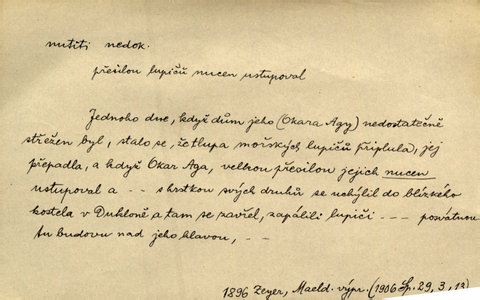 nutiti nedok.
přesilou lupičů nucen ustupoval
Jednoho dne, když dům jeho (Okara Agy) nedostatečně
střežen byl, stalo se, že tlupa mořských lupičů připlula, jej
přepadla, a když Okar Aga, velkou přesilou jejich nucen
ustupoval a - - s hrstkou svých druhů se uchýlil do blízkého
kostela v Dukloně a tam se zavřel, zapálili lupiči - - - posvátnou
tu budovu nad jeho hlavou, - -
1896 Zeyer, Maeld. výpr. (1906 Sp. 29, 3, 13)